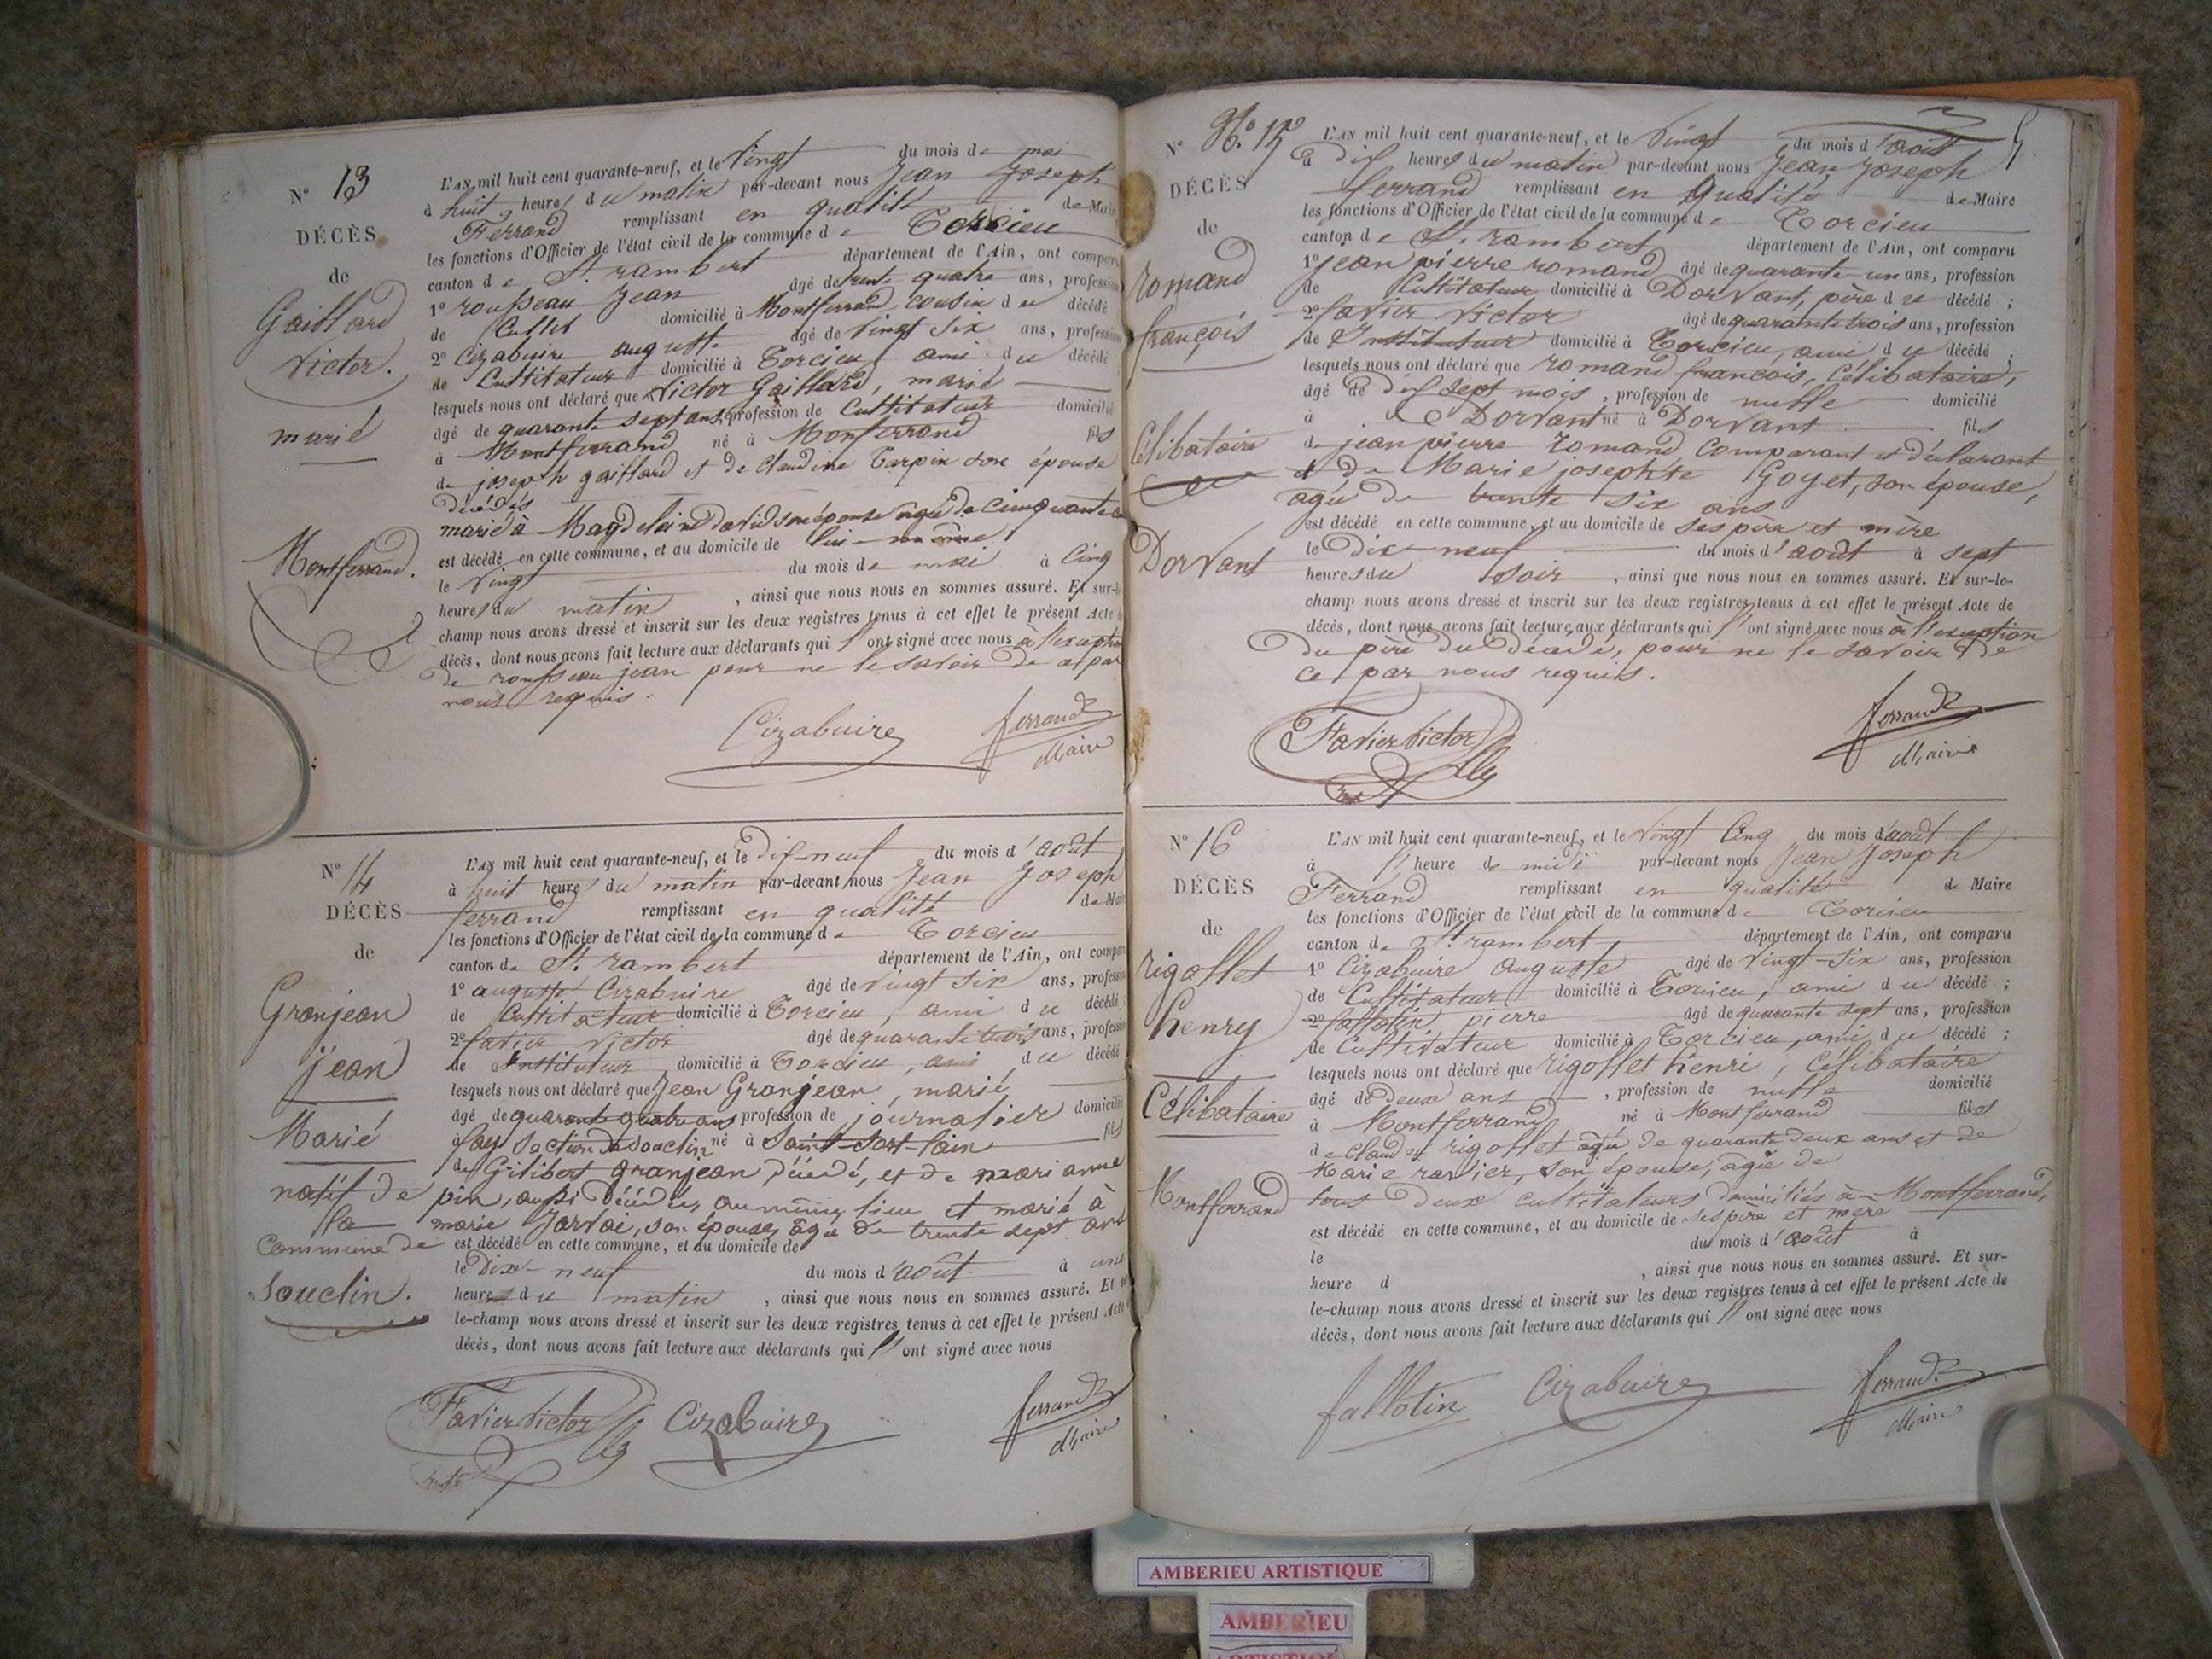 N° 13
DÉCÈS
de
Gaillard
Victor.
marié
Montferrand.
L'AN mil huit cent quarante-neuf, et le Vingt du mois de mai
à huit heures du matin par-devant nous Jean Joseph
Ferrand remplissant en qualité de Maire
les fonctions d'Officier de l'état civil de la commune de Torcieu
canton de St. rambert département de l'Ain, ont comparu
1° rousseau Jean âgé de trente quatre ans, profession
de Cultet domicilié à Montferrand, cousin du décédé
2° Cizabuire auguste âgé de Vingt Six ans, profession
de Cultivateur domicilié à Torcieu, ami du décédé
lesquels nous ont déclaré que Victor Gaillard, marié
âgé de quarante sept ans, profession de Cultivateur domicilié
à Montferrand né à Montferrand fils
de joseph gaillard et de Claudine Tarpin son épouse
décédés
marié à Magdeleine david son épouse âgée de Cinquante
est décédé en cette commune, et au domicile de lui-même
le Vingt du mois de mai à Cinq
heures du matin, ainsi que nous nous en sommes assuré. Et sur-le-
champ nous avons dressé et inscrit sur les deux registres tenus à cet effet le présent Acte
décès, dont nous avons fait lecture aux déclarants qui l'ont signé avec nous à l'exception
de rousseau jean pour ne le savoir de ce par
nous requis.
Cizabuire ferrand
Maire
N° 14
DÉCÈS
de
Granjean
jean
Marié
natif de
la
Commune de
Souclin.
L'AN mil huit cent quarante-neuf, et le dix-neuf du mois d'août
à huit heures du matin par-devant nous Jean Joseph
ferrand remplissant en qualité de Maire
les fonctions d'Officier de l'état civil de la commune de Torcieu
canton de St. rambert département de l'Ain, ont comparu
1° auguste Cizabuire âgé de vingt six ans, profession
de Cultivateur domicilié à Torcieu, ami du décédé
2° favier victor âgé de quarante trois ans, profession
de Instituteur domicilié à Torcieu, ami du décédé
lesquels nous ont déclaré que Jean Granjean, marié
âgé de quarante quatre ans profession de journalier domicilié
à fay Section de Souclin né à Saint-Sort-lain fils
de Gilibert granjean décédé, et de marianne
pin, aussi décédée, au même lieu et marié à
marie Jarvoi, son épouse, âgée de trente sept ans
est décédé en cette commune, et au domicile de
le Dix-neuf du mois d'août à une
heures du matin, ainsi que nous nous en sommes assuré. Et sur-
le-champ nous avons dressé et inscrit sur les deux registres tenus à cet effet le présent Acte
décès, dont nous avons fait lecture aux déclarants qui l'ont signé avec nous
Favier Victor Cizabuire ferrand
Maire
N° N°. 15
DÉCÈS
de
romand
françois
Célibataire
Dorvant
5
L'AN mil huit cent quarante-neuf, et le Vingt du mois d'août
à dix heures du matin par-devant nous Jean Joseph
ferrand remplissant en qualité de Maire
les fonctions d'Officier de l'état civil de la commune de Torcieu
canton de St. rambert département de l'Ain, ont comparu
1° jean pierre romand âgé de quarante-un ans, profession
de Cultivateur domicilié à Dorvant, père du décédé ;
2° favier victor âgé de quarante trois ans, profession
de Instituteur domicilié à Torcieu, ami du décédé ;
lesquels nous ont déclaré que romand françois, Célibataire,
âgé de dix sept mois, profession de nulle domicilié
à Dorvant né à Dorvant fils
de jean pierre romand, comparant et déclarant
et de Marie josephte Goyet, son épouse,
agée de trente six ans
est décédé en cette commune, et au domicile de ses père et mère
le Dix-neuf du mois d'août à sept
heures du soir, ainsi que nous nous en sommes assuré. Et sur-le-
champ nous avons dressé et inscrit sur les deux registres tenus à cet effet le présent Acte de
décès, dont nous avons fait lecture aux déclarants qui l'ont signé avec nous à l'exception
du père du décédé, pour ne le savoir de
ce par nous requis.
Favier Victor ferrand
Maire
N° 16
DÉCÈS
de
rigollet
henry
Célibataire
Montferrand
L'AN mil huit cent quarante-neuf, et le Vingt Cinq du mois d'août
à l'heure de midi par-devant nous Jean Joseph
Ferrand remplissant en qualité de Maire
les fonctions d'Officier de l'état civil de la commune de Torcieu
canton de St. rambert département de l'Ain, ont comparu
1° Cizabuire auguste âgé de vingt-six ans, profession
de Cultivateur domicilié à Torcieu, ami du décédé ;
2° fallotin pierre âgé de quarante sept ans, profession
de Cultivateur domicilié à Torcieu, ami du décédé ;
lesquels nous ont déclaré que rigollet henri, Célibataire
âgé de deux ans, profession de nulle domicilié
à Montferrand né à Montferrand fils
de Claude rigollet agé de quarante deux ans et de
Marie ravier, son épouse, agée de
tous deux cultivateurs domiciliés à Montferrand,
est décédé en cette commune, et au domicile de ses père et mère
le du mois d'août à
heure d , ainsi que nous nous en sommes assuré. Et sur-
le-champ nous avons dressé et inscrit sur les deux registres tenus à cet effet le présent Acte de
décès, dont nous avons fait lecture aux déclarants qui l'ont signé avec nous
fallotin Cizabuire ferrand
Maire
AMBERIEU ARTISTIQUE
AMBERIEU
ARTISTIQUE